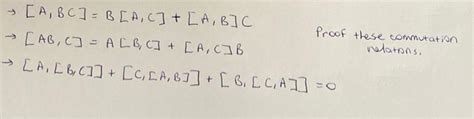 → [A, BC] = B[A, C] + [A, B]C
Proof these commutation
relations.
→ [AB, C] = A[B, C] + [A, C]B
→ [A, [B, C]] + [C, [A, B]] + [B, [C, A]] = 0